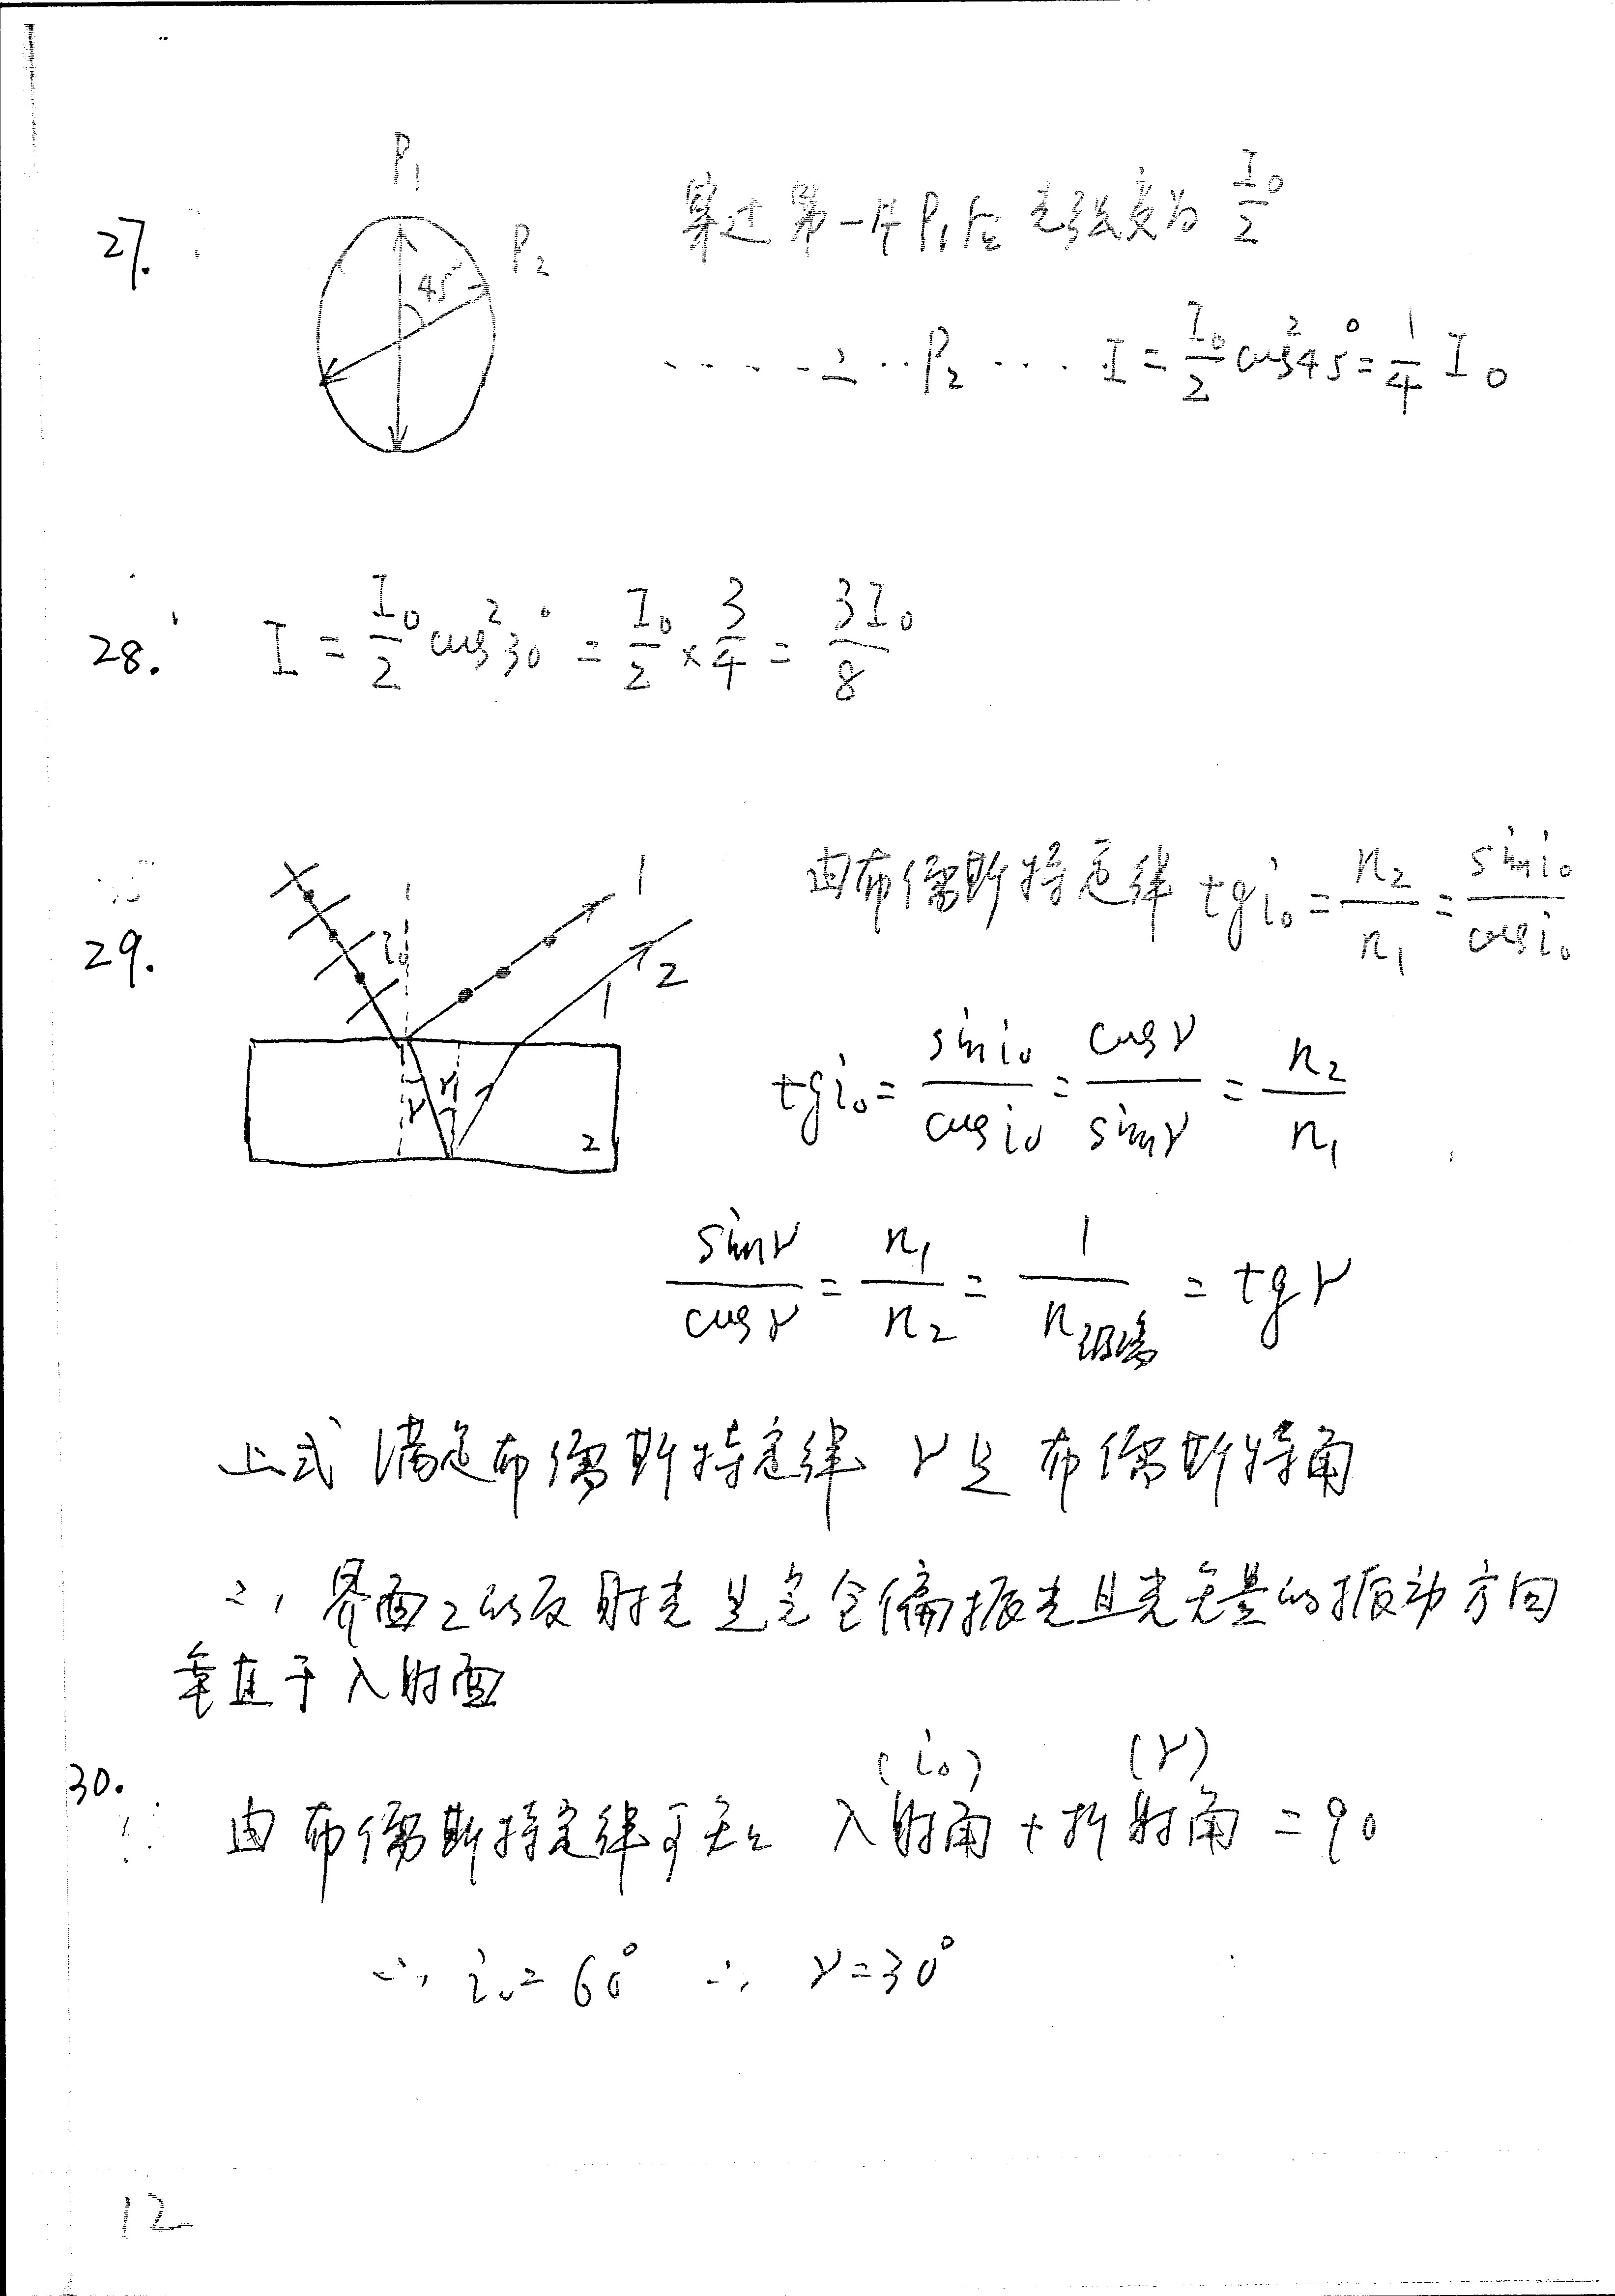 27.
P₁
P₂
45°
穿过第一片P₁后 光强度为 I₀/2
.....二..P₂.... I = I₀/2 cos²45° = 1/4 I₀
28. I = I₀/2 cos²30° = I₀/2 × 3/4 = 3I₀/8
29.
i₀
1
2
1
γ
γ
2
由布儒斯特定律 tgi₀ = n₂/n₁ = sini₀/cosi₀
tgi₀ = sini₀/cosi₀ = cosγ/sinγ = n₂/n₁
sinγ/cosγ = n₁/n₂ = 1/n玻璃 = tgγ
上式满足布儒斯特定律 γ是布儒斯特角
∴ 界面2的反射光是完全偏振光且光矢量的振动方向
垂直于入射面
30.
(i₀) (γ)
由布儒斯特定律可知 入射角 + 折射角 = 90
∵ i₀ = 60° ∴ γ = 30°
12